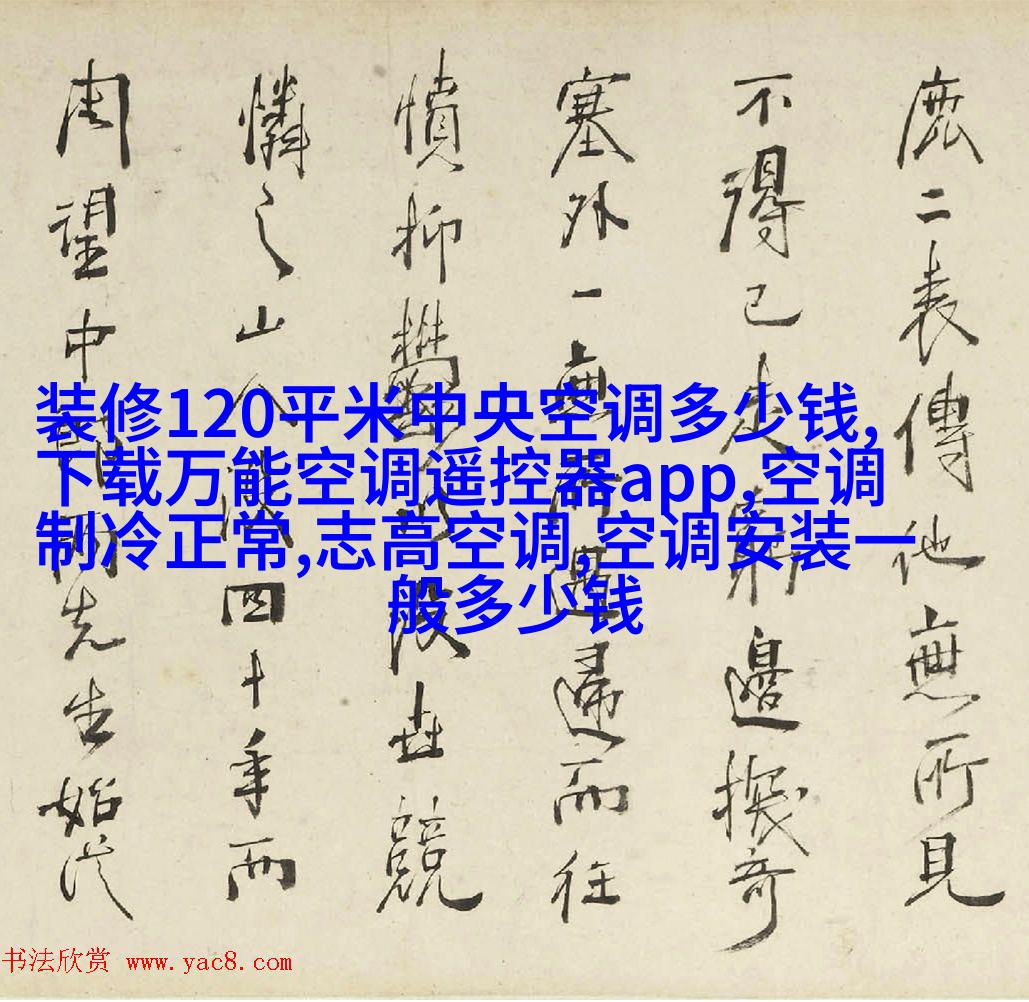 装修120平米中央空调多少钱,
下载万能空调遥控器app,空调
制冷正常,志高空调,空调安装一
般多少钱
鹿二表傳他無所見
不得已走窮邊奇
塞外一無所遇歸而往
憤抑鬱世競
憐之山人四十年而
周望中兩先生始
书法欣赏 www.yac8.com